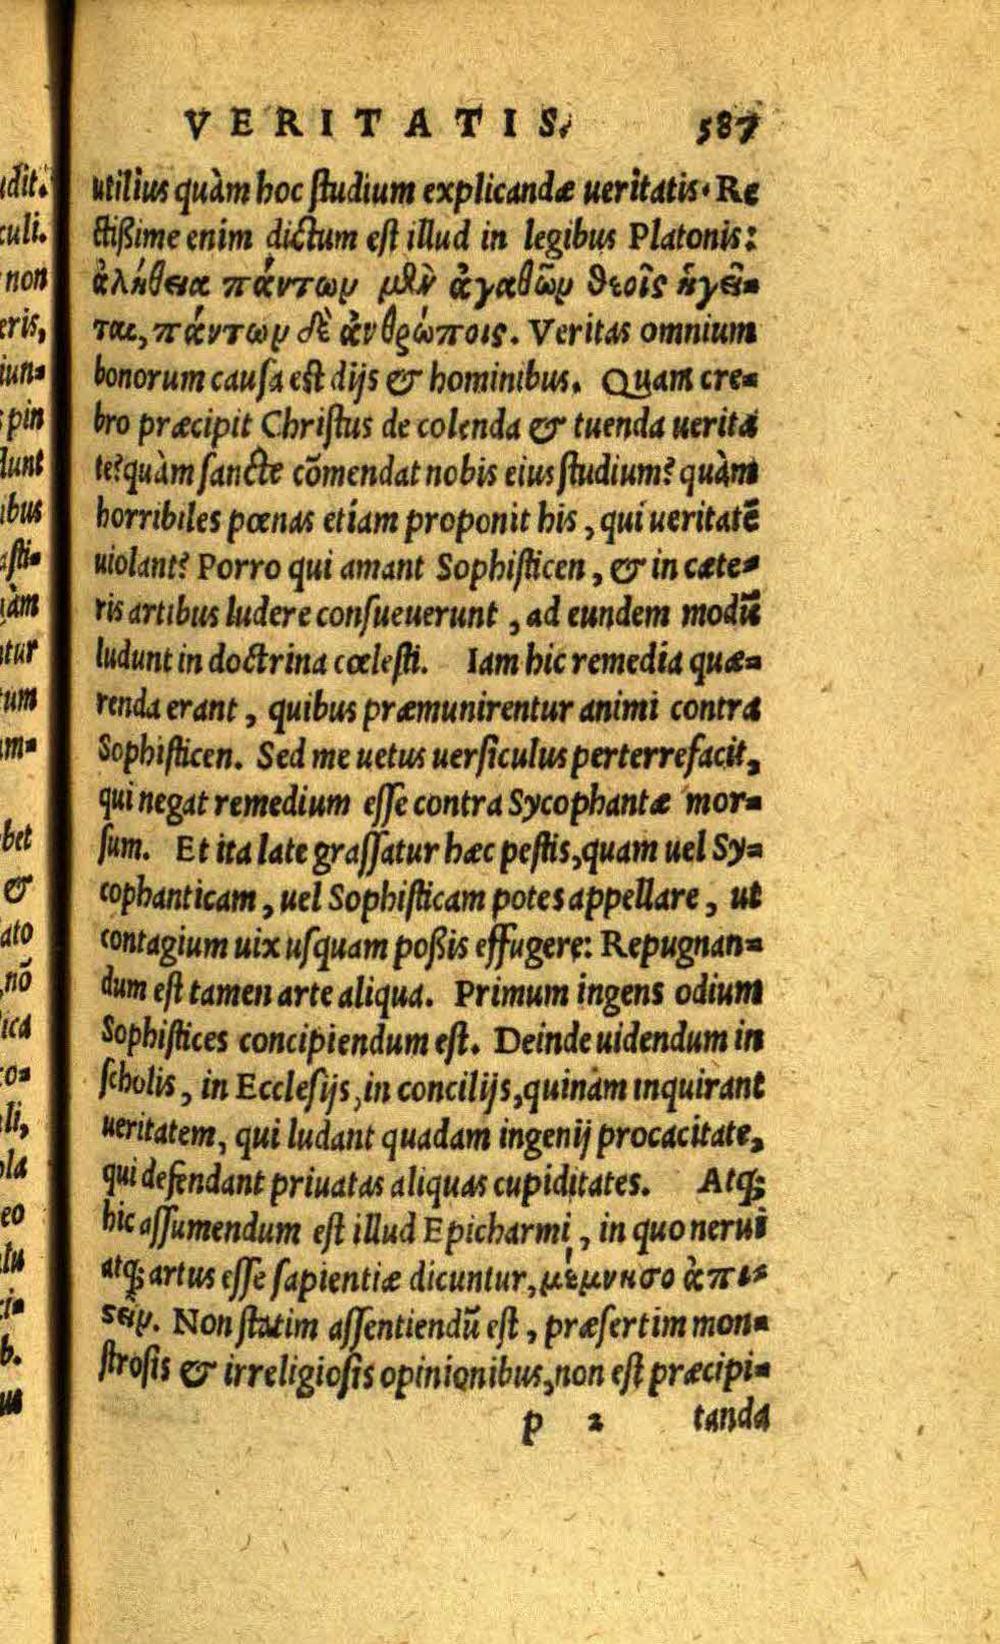 VERITATIS. 587
utilius quàm hoc studium explicandæ ueritatis. Re
ctißime enim dictum est illud in legibus Platonis:
ἀλήθεια πάντων μὲν ἀγαθῶν θεοῖς ἡγεῖ-
ται, πάντων δὲ ἀνθρώποις. Veritas omnium
bonorum causa est dijs & hominibus. Quam cre-
bro præcipit Christus de colenda & tuenda uerita
te? quàm sancte cõmendat nobis eius studium? quàm
horribiles pœnas etiam proponit his, qui ueritatē
uiolant? Porro qui amant Sophisticen, & in cæte-
ris artibus ludere consueuerunt, ad eundem modū
ludunt in doctrina cœlesti. Iam hic remedia quæ-
renda erant, quibus præmunirentur animi contra
Sophisticen. Sed me uetus uersiculus perterrefacit,
qui negat remedium esse contra Sycophantæ mor-
sum. Et ita late grassatur hæc pestis, quam uel Sy-
cophanticam, uel Sophisticam potes appellare, ut
contagium uix usquam poßis effugere: Repugnan-
dum est tamen arte aliqua. Primum ingens odium
Sophistices concipiendum est. Deinde uidendum in
scholis, in Ecclesijs, in concilijs, quinam inquirant
ueritatem, qui ludant quadam ingenij procacitate,
qui defendant priuatas aliquas cupiditates. Atq;
hic assumendum est illud Epicharmi, in quo nerui
atq; artus esse sapientiæ dicuntur, μέμνησο ἀπι-
ςεῖν. Non statim assentiendū est, præsertim mon-
strosis & irreligiosis opinionibus, non est præcipi-
p 2 tanda